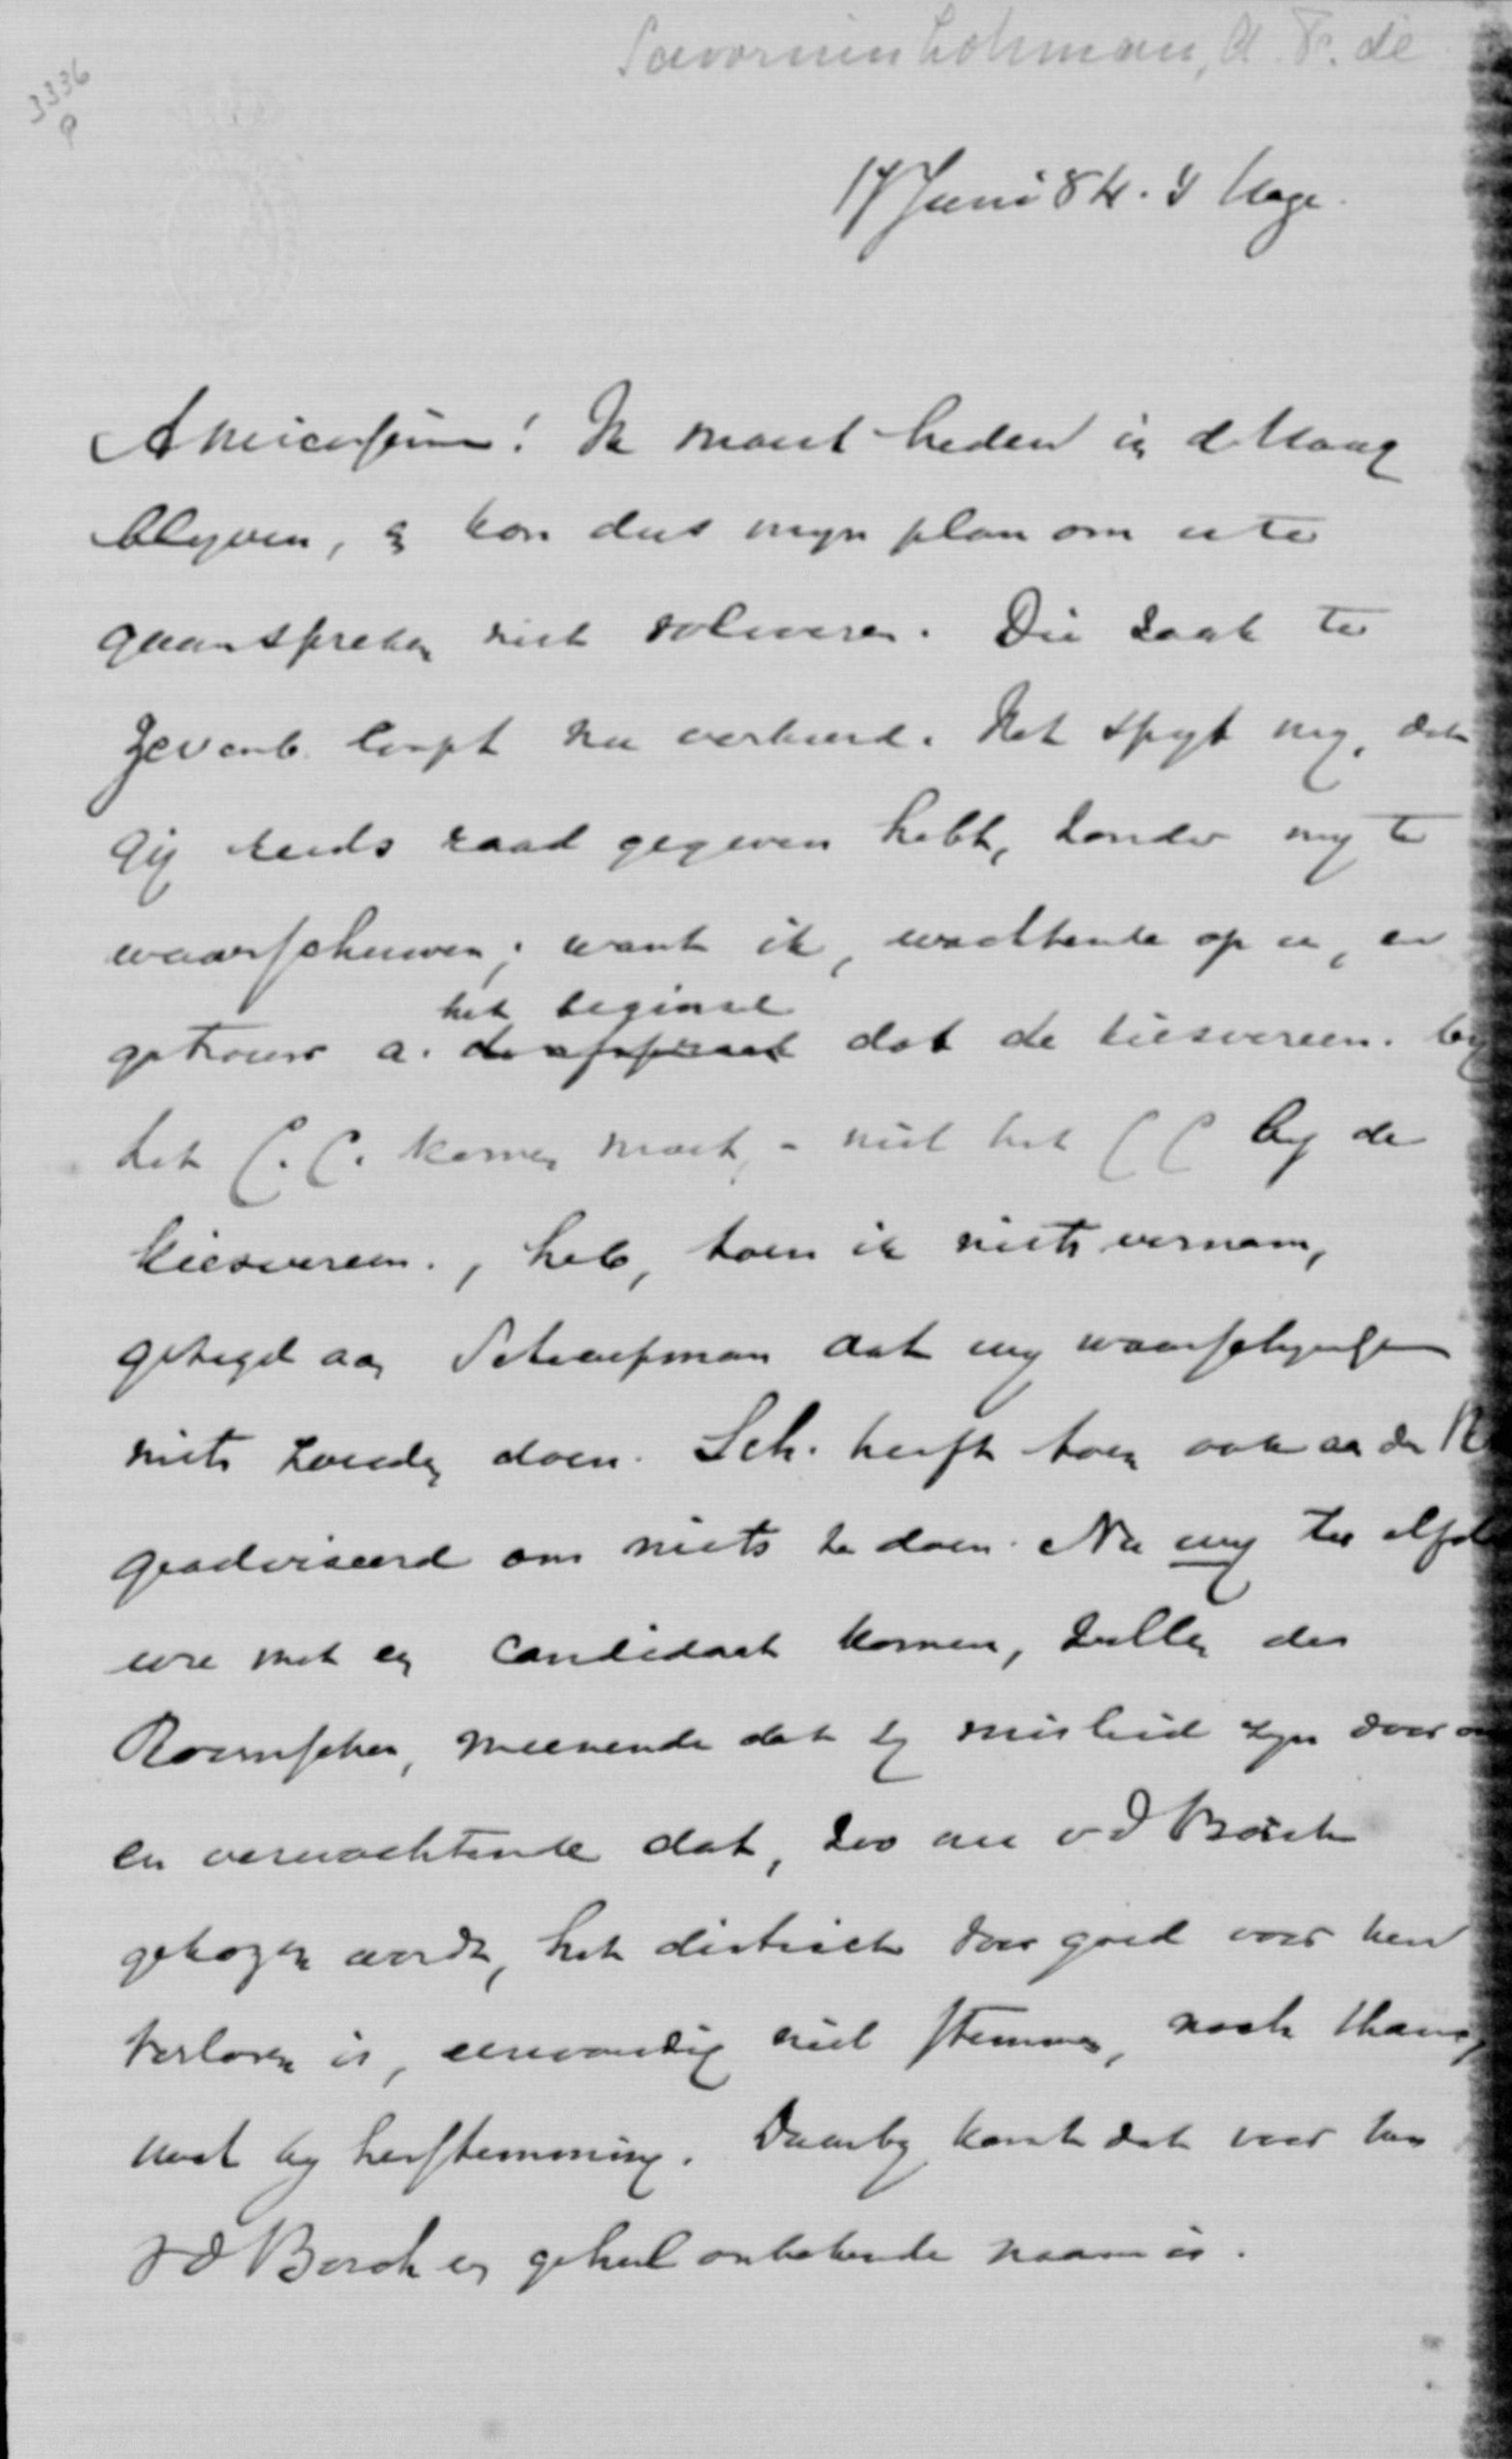 Savornin Lohman, A. F. de
3336
P
17 Juni 84. 's Hage.
Amicissime! Ik moest heden in d. Haag
blyven, en kon dus myn plan om u te
gaan spreken niet volvoeren. Die zaak te
Zevenb. loopt nu verkeerd. Het spyt my, dat
Gij reeds raad gegeven hebt, zonder my te
waarschuwen; want ik, wachtende op u, en
het beginsel
getrouw a. dat de kiesvereen. by
het C.C. komen moet, - niet het CC by de
kiesvereen., heb, toen ik niets vernam,
gezegd aan Schaepman dat wy waarschynlyk
niets zouden doen. Sch. heeft toen ook aan de
geadviseerd om niets te doen. Nu wy ter elfder
ure met een candidaat komen, zullen de
Roomschen, meenende dat zy misleid zyn door
en verwachtende dat, zoo nu v d Borch
gekozen wordt, het district voor goed voor hen
verloren is, eenvoudig niet stemmen, noch thans,
noch by herstemming. Daarby komt dat voor hen
v d Borch een geheel onbekende naam is.